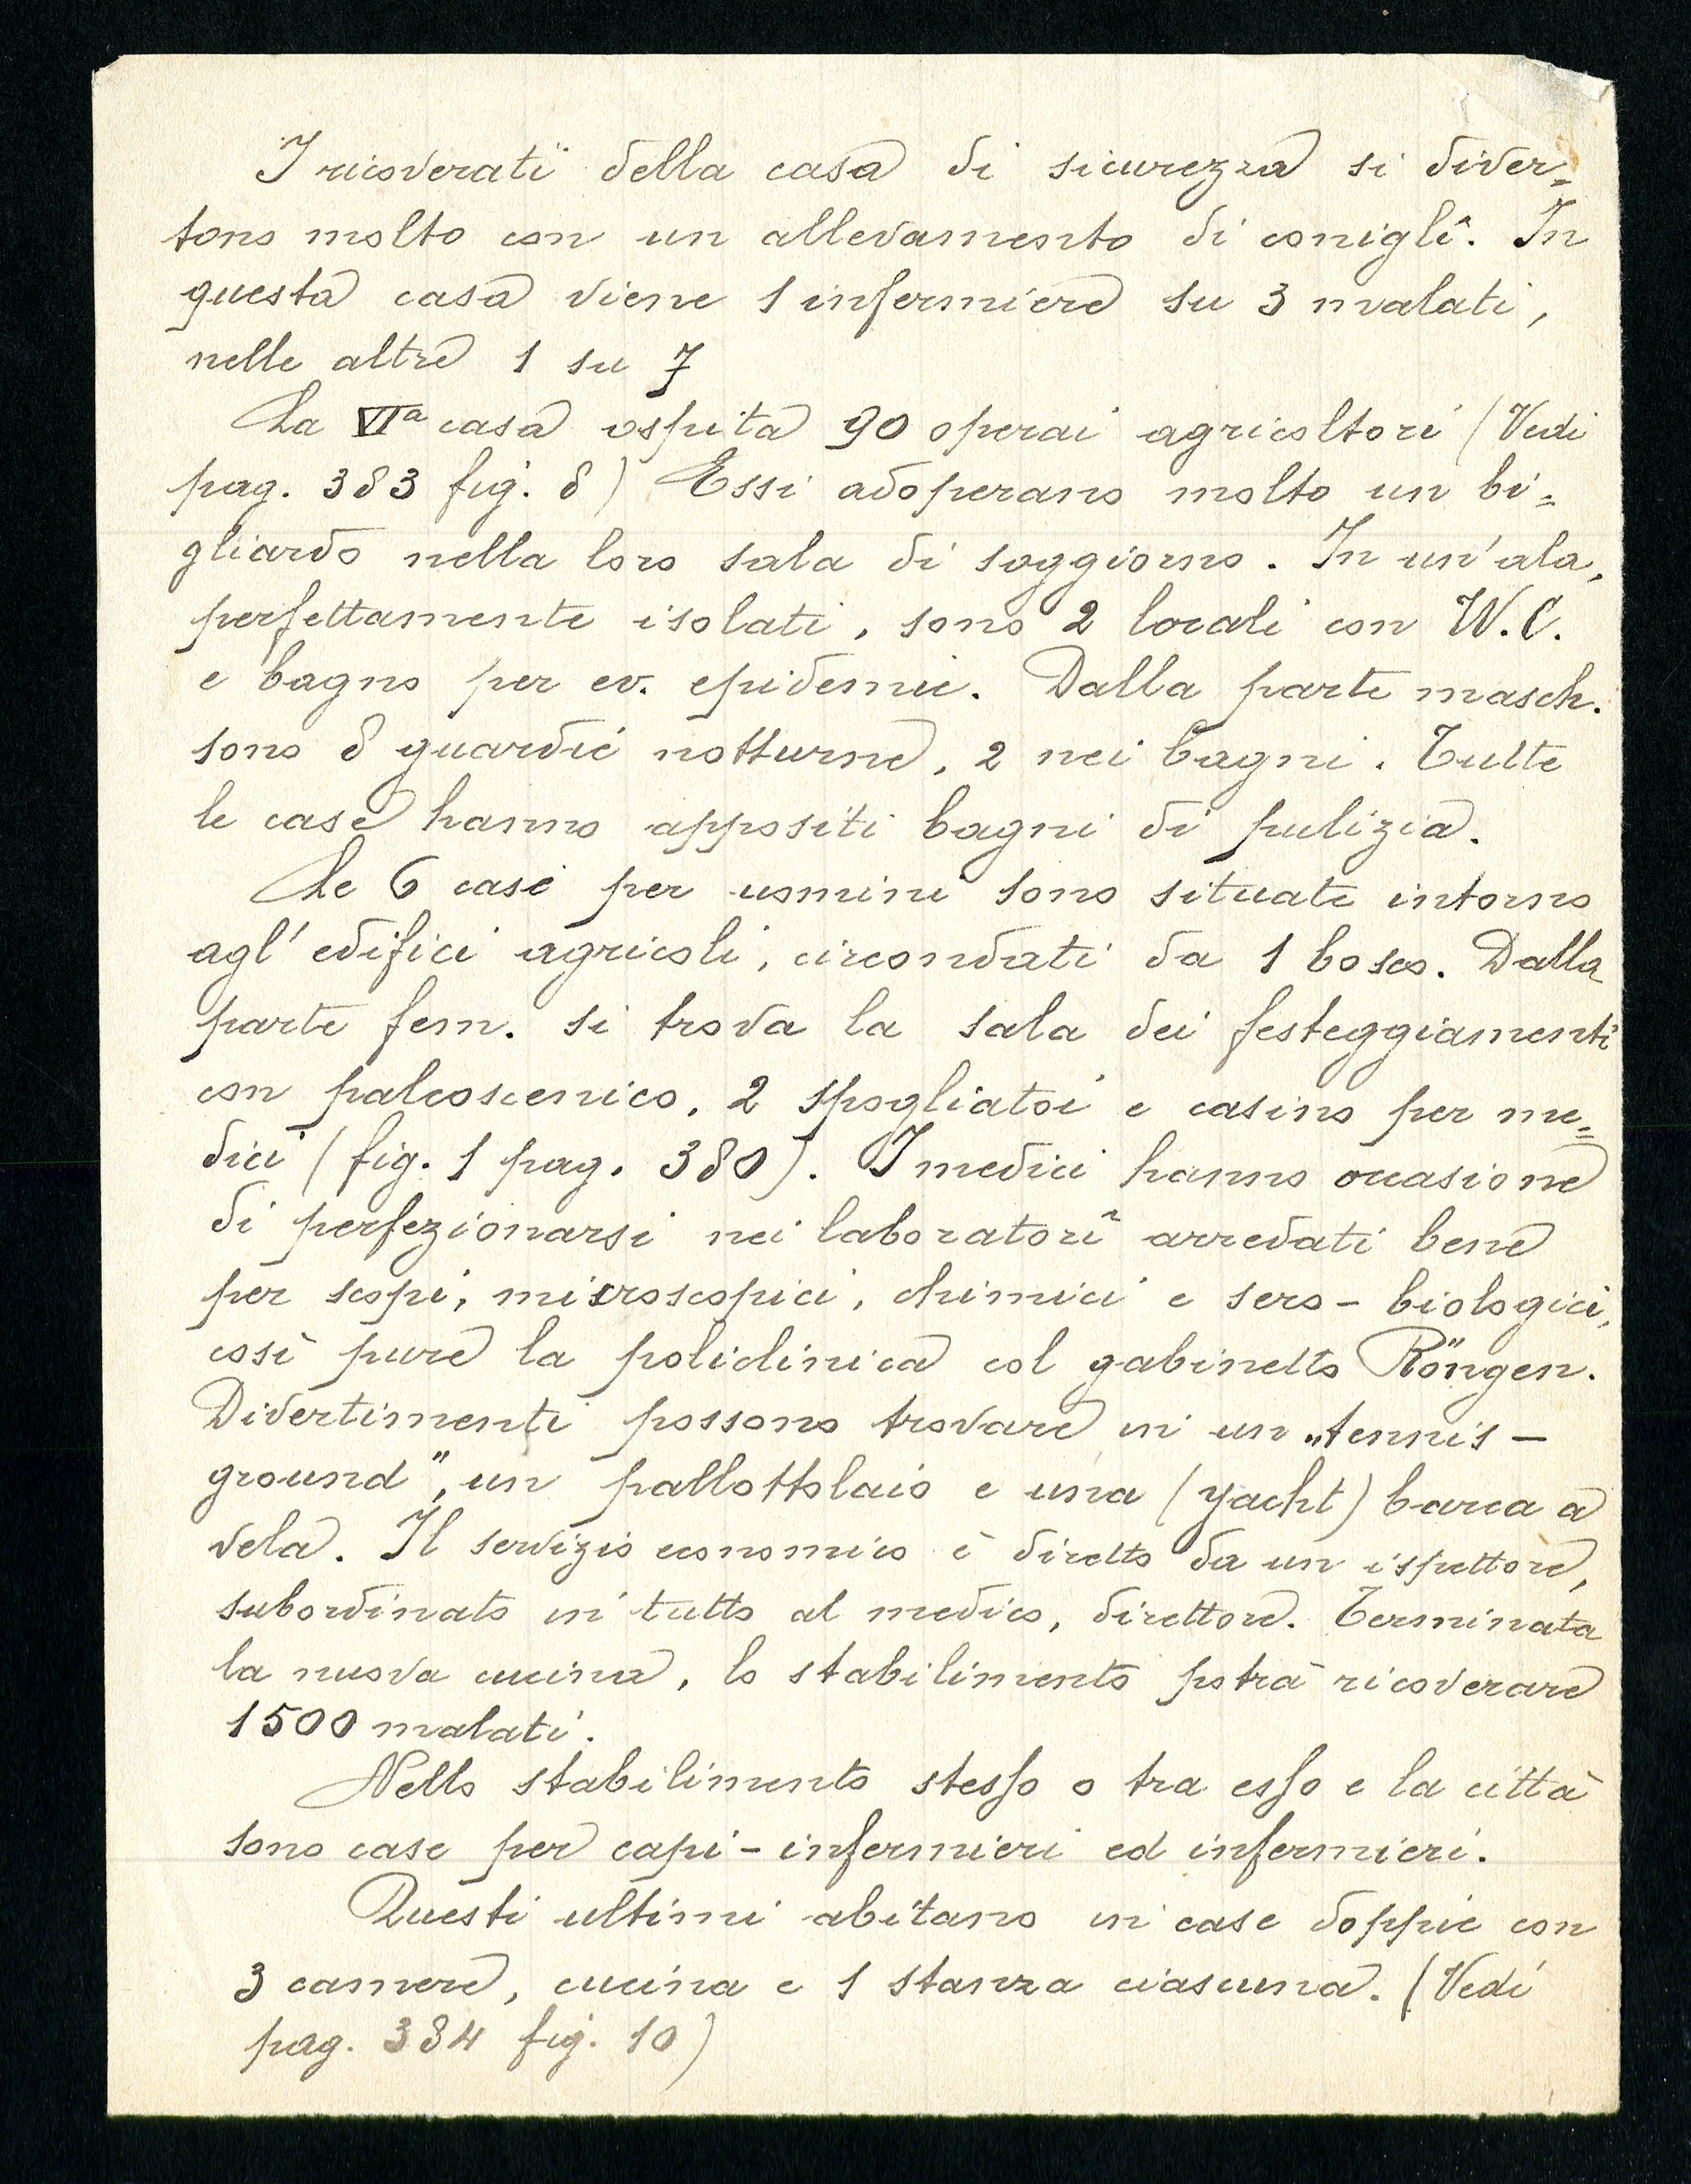 I ricoverati della casa di sicurezza si diver=
tono molto con un allevamento di coniglî. In
questa casa viene 1 infermiere su 3 malati,
nelle altre 1 su 7
La VIª casa ospita 90 operai agricoltori (Vedi
pag. 383 fig. 8) Essi adoperano molto un bi=
gliardo nella loro sala di soggiorno. In un'ala,
perfettamente isolati, sono 2 locali con W.C.
e bagno per ev. epidemie. Dalla parte masch.
sono 8 guardie notturne, 2 nei bagni. Tutte
le case hanno appositi bagni di pulizia.
Le 6 case per uomini sono situate intorno
agl' edifici agricoli, circondati da 1 bosco. Dalla
parte fem. si trova la sala dei festeggiamenti
con palcoscenico, 2 spogliatoi e casino per me=
dici (fig. 1 pag. 380). I medici hanno occasione
di perfezionarsi nei laboratorî arredati bene
per scopi, microscopici, chimici e sero-biologici,
così pure la policlinica col gabinetto Röngen.
Divertimenti possono trovare in un „tennis-
ground", un pallottolaio e una (yacht) barca a
vela. Il servizio economico è diretto da un ispettore,
subordinato in tutto al medico, direttore. Terminata
la nuova cucina, lo stabilimento potrà ricoverare
1500 malati.
Nello stabilimento stesso o tra esso e la città
sono case per capi-infermieri ed infermieri.
Questi ultimi abitano in case doppie con
3 camere, cucina e 1 stanza ciascuna. (Vedi
pag. 384 fig. 10)